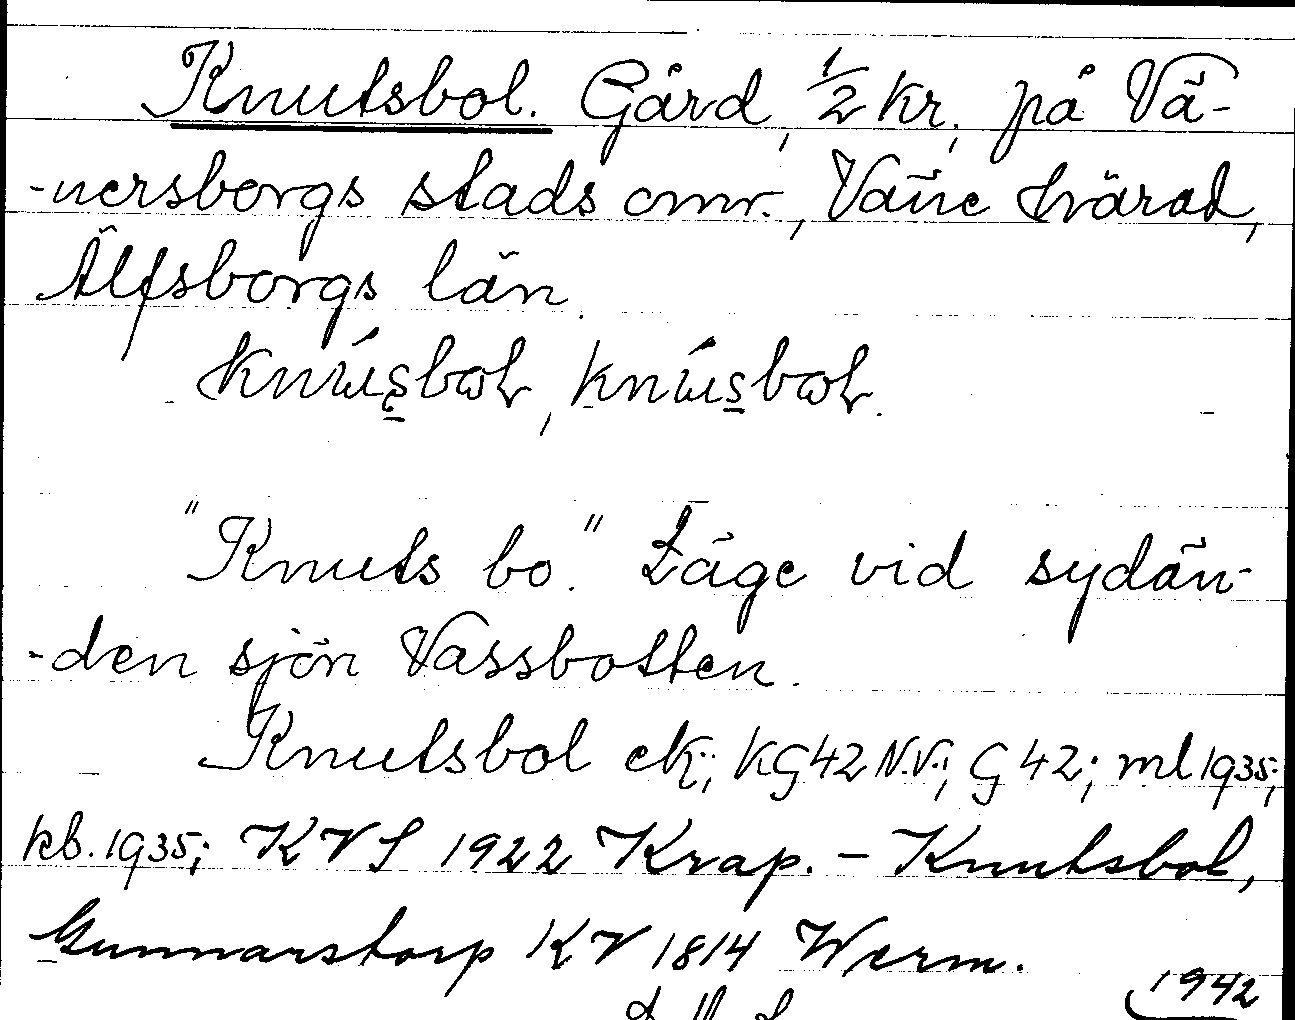 Knutsbol. Gård, 1/2 kr, på Vä-
-nersborgs stads omr., Väne härad,
Älfsborgs län.
"Knuts bo." Läge vid sydän-
-den sjön Vassbotten.
Knutsbol ek; KG42 N.V.; G 42; ml 1935;
kb. 1935; KVS 1922 Krap. – Knutsbol,
Gunnarstorp KV 1814 Werm.
1942